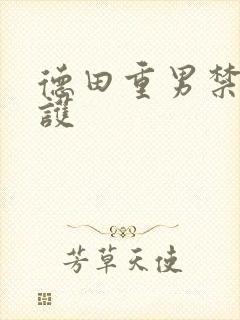 德田重男禁
護
芳草天使